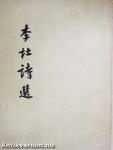 李杜詩選
antikvarium.hu